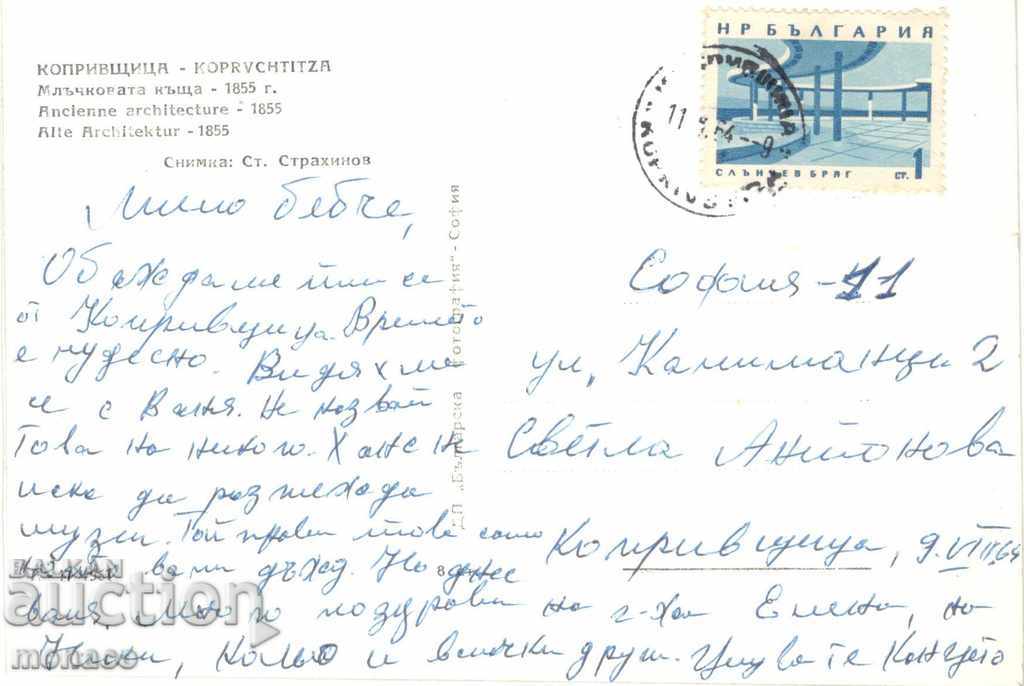 КОПРИВЩИЦА - KOPRVCHTITZA
Млъчковата къща - 1855 г.
Ancienne architecture - 1855
Alte Architektur - 1855
Снимка: Ст. Страхинов
НР БЪЛГАРИЯ
СЛЪНЧЕВ БРЯГ СТ. 1
11 64 - 9
Мило бебче,
Обаждаме ти се
от Копривщица. Времето
е чудесно. Видяхме
се с Ваня. Не казвай
това на никого. Ханс не
иска да разглежда
музеи. Той прави това само
вали дъжд.
Много поздрави на г-жа Елена, на
Кольо и всички други. Целува те
ДП „Българска фотография" - София
София - 11
ул. Калиманци 2
Светла Антонова
Копривщица, 9.VIII.64
BALKAN
auction
monaco